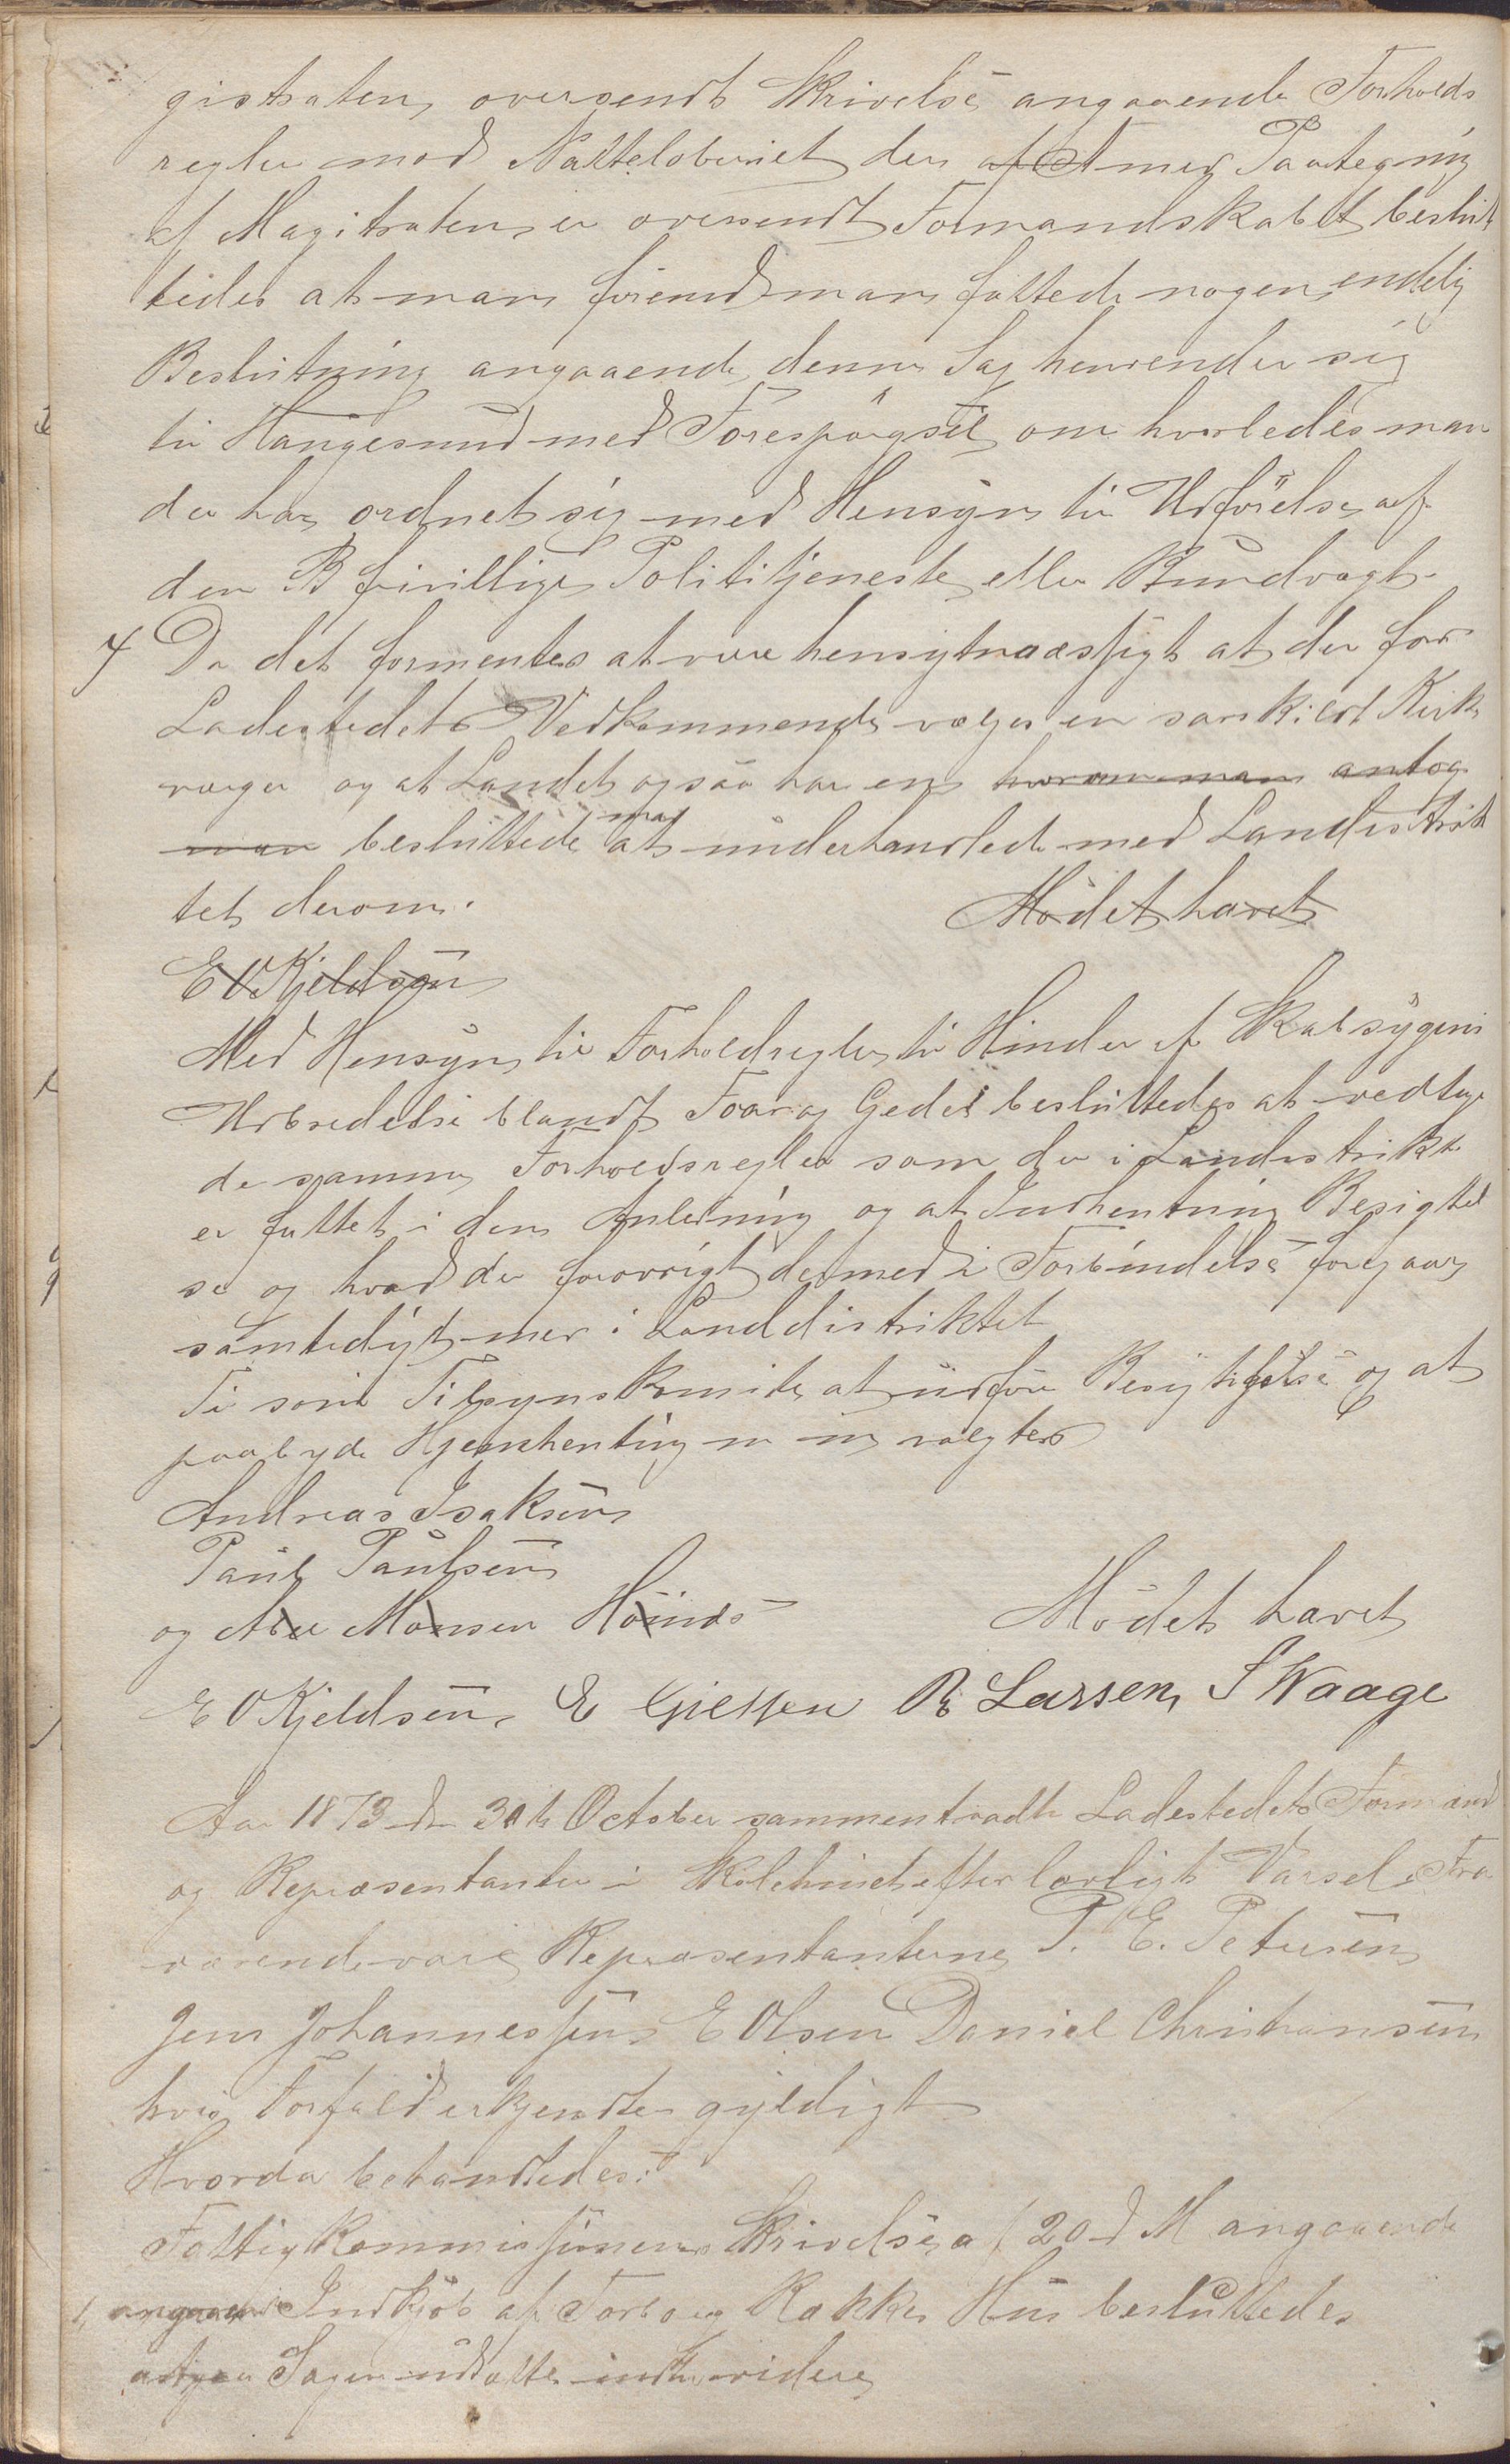 gistraten oversendt Skrivelse angaaende Forholds
regler mod Natteloberiet der af Et med Paategning
af Magitraten er oversendt Formandskabet beslut
tedes at man forend man fattede nogen endelig
Beslutning angaaende denne Sag henvender sig
til Haugesund med Forespørgsel om hvorledes man
der har ordnet sig med Hensyn til Udførelse af
den B frivillige Polititjeneste eller Rundvagt.
4 Da det formentes at være hensigtmæssigt at der for
Ladestedets Vedkommende vælges en særskildt Kirke
værger og at Landet ogsaa har en hvorom man antog
man besluttede man at underhandlede med Landistrik
tet derom.
Mødet hævet
E O Kjeldsen
Med Hensyn til Forholdregler til Hinder af Skabsygens
Udbredelse blandt Faar og Geder besluttedes at vedtage
de samme Forholdsregler som der i Landistrikt
er fattet i den Anledning og at Indhentning Besigtel
se og hvad der forøvrigt dermed i Forbindelse foregaar
samtidigt med i Landdistriktet
Ti som Tilsynskomite at udføre Besigtigelse og at
paabyde Hjemhenting valgtes
Andreas Isaksen
Paul Paulsen
og Monsen
Mødet hævet
E O Kjeldsen E Gjessen R Larsen S Waage
Aar 1873 den 30te October sammentraadte Ladestedets Formænd
og Repræsentanter i Skolehuset efter lovligt Varsel. Fra
værende vare Repræsentanterne P. E. Petersen
Jens Johannessen E Olsen Daniel Christiansen
hvis Forfald erkjendtes gyldigt
Hvorda behandledes:
Fattigkommissionens Skrivelse af 20 d M angaaende
1, angaaende Indkjøb af Torborg Rakkes Hus besluttedes
Sagen udsatte indtil videre